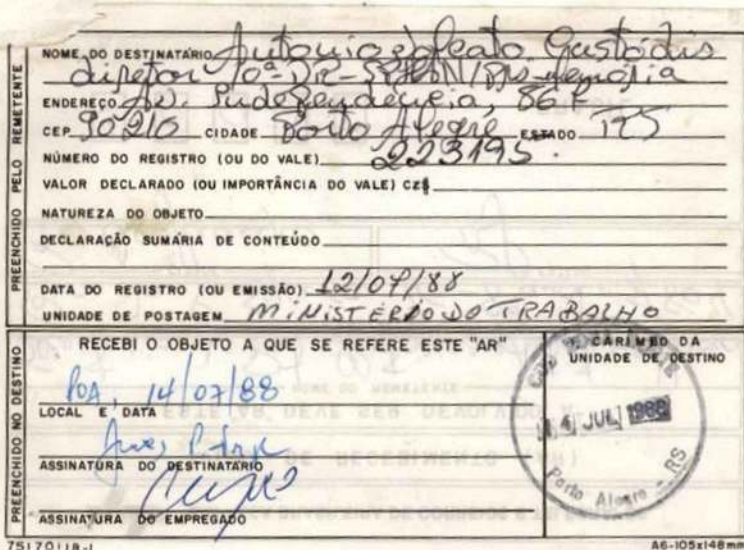 PREENCHIDO PELO REMETENTE
NOME DO DESTINATÁRIO Antonio Custódio
diretor 10ª DR-SPHAN/Pró-memória
ENDEREÇO Av. Independência, 867
CEP 90210 CIDADE Porto Alegre ESTADO RS
NÚMERO DO REGISTRO (OU DO VALE) 223195.
VALOR DECLARADO (OU IMPORTÂNCIA DO VALE) CZ$
NATUREZA DO OBJETO
DECLARAÇÃO SUMÁRIA DE CONTEÚDO
DATA DO REGISTRO (OU EMISSÃO) 12/07/88
UNIDADE DE POSTAGEM MINISTÉRIO DO TRABALHO
PREENCHIDO NO DESTINO
RECEBI O OBJETO A QUE SE REFERE ESTE "AR"
POA, 14/07/88
LOCAL E DATA
ASSINATURA DO DESTINATÁRIO
ASSINATURA DO EMPREGADO
CARIMBO DA
UNIDADE DE DESTINO
14 JUL 1988
Porto Alegre - RS
75170118-1
A6-105x148mm